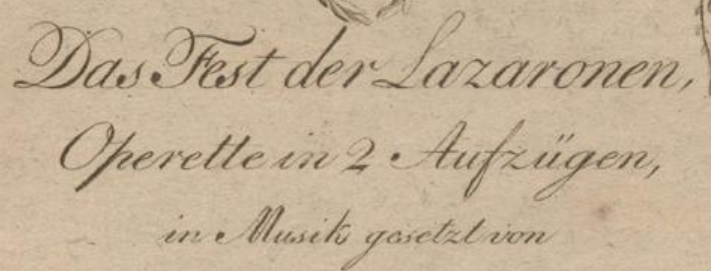 Das Fest der Lazaronen,
Operette in 2 Aufzügen,
in Musik gesetzt von